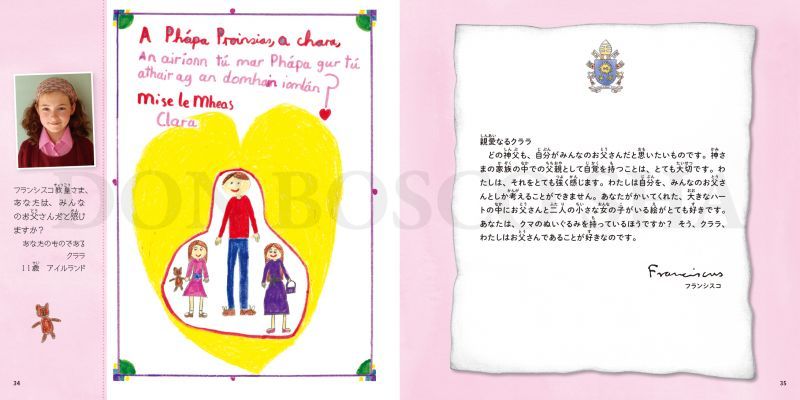 A Phápa Proinsias, a chara,
An airíonn tú mar Phápa gur tú
athair ag an domhain iomlán?
Mise le Mheas
Clara
フランシスコ教皇さま、
あなたは、みんな
のお父さんだと感じ
ますか？
あなたのものである
クララ
11歳 アイルランド
34
親愛なるクララ
どの神父も、自分がみんなのお父さんだと思いたいものです。神さ
まの家族の中での父親として自覚を持つことは、とても大切です。わ
たしは、それをとても強く感じます。わたしは自分を、みんなのお父さ
んとしか考えることができません。あなたがかいてくれた、大きなハー
トの中にお父さんと二人の小さな女の子がいる絵がとても好きです。
あなたは、クマのぬいぐるみを持っているほうですか？ そう、クララ、
わたしはお父さんであることが好きなのです。
Franciscus
フランシスコ
35
DON BOSCO